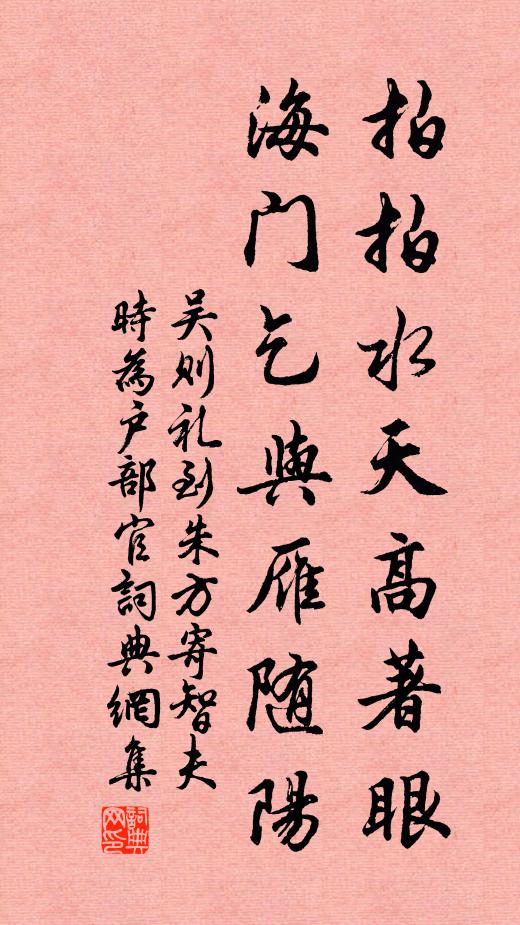 拍拍水天高著眼
海门乞與雁随陽
吴则礼到朱方寄智夫
時為户部官詞典網集
詞典网印